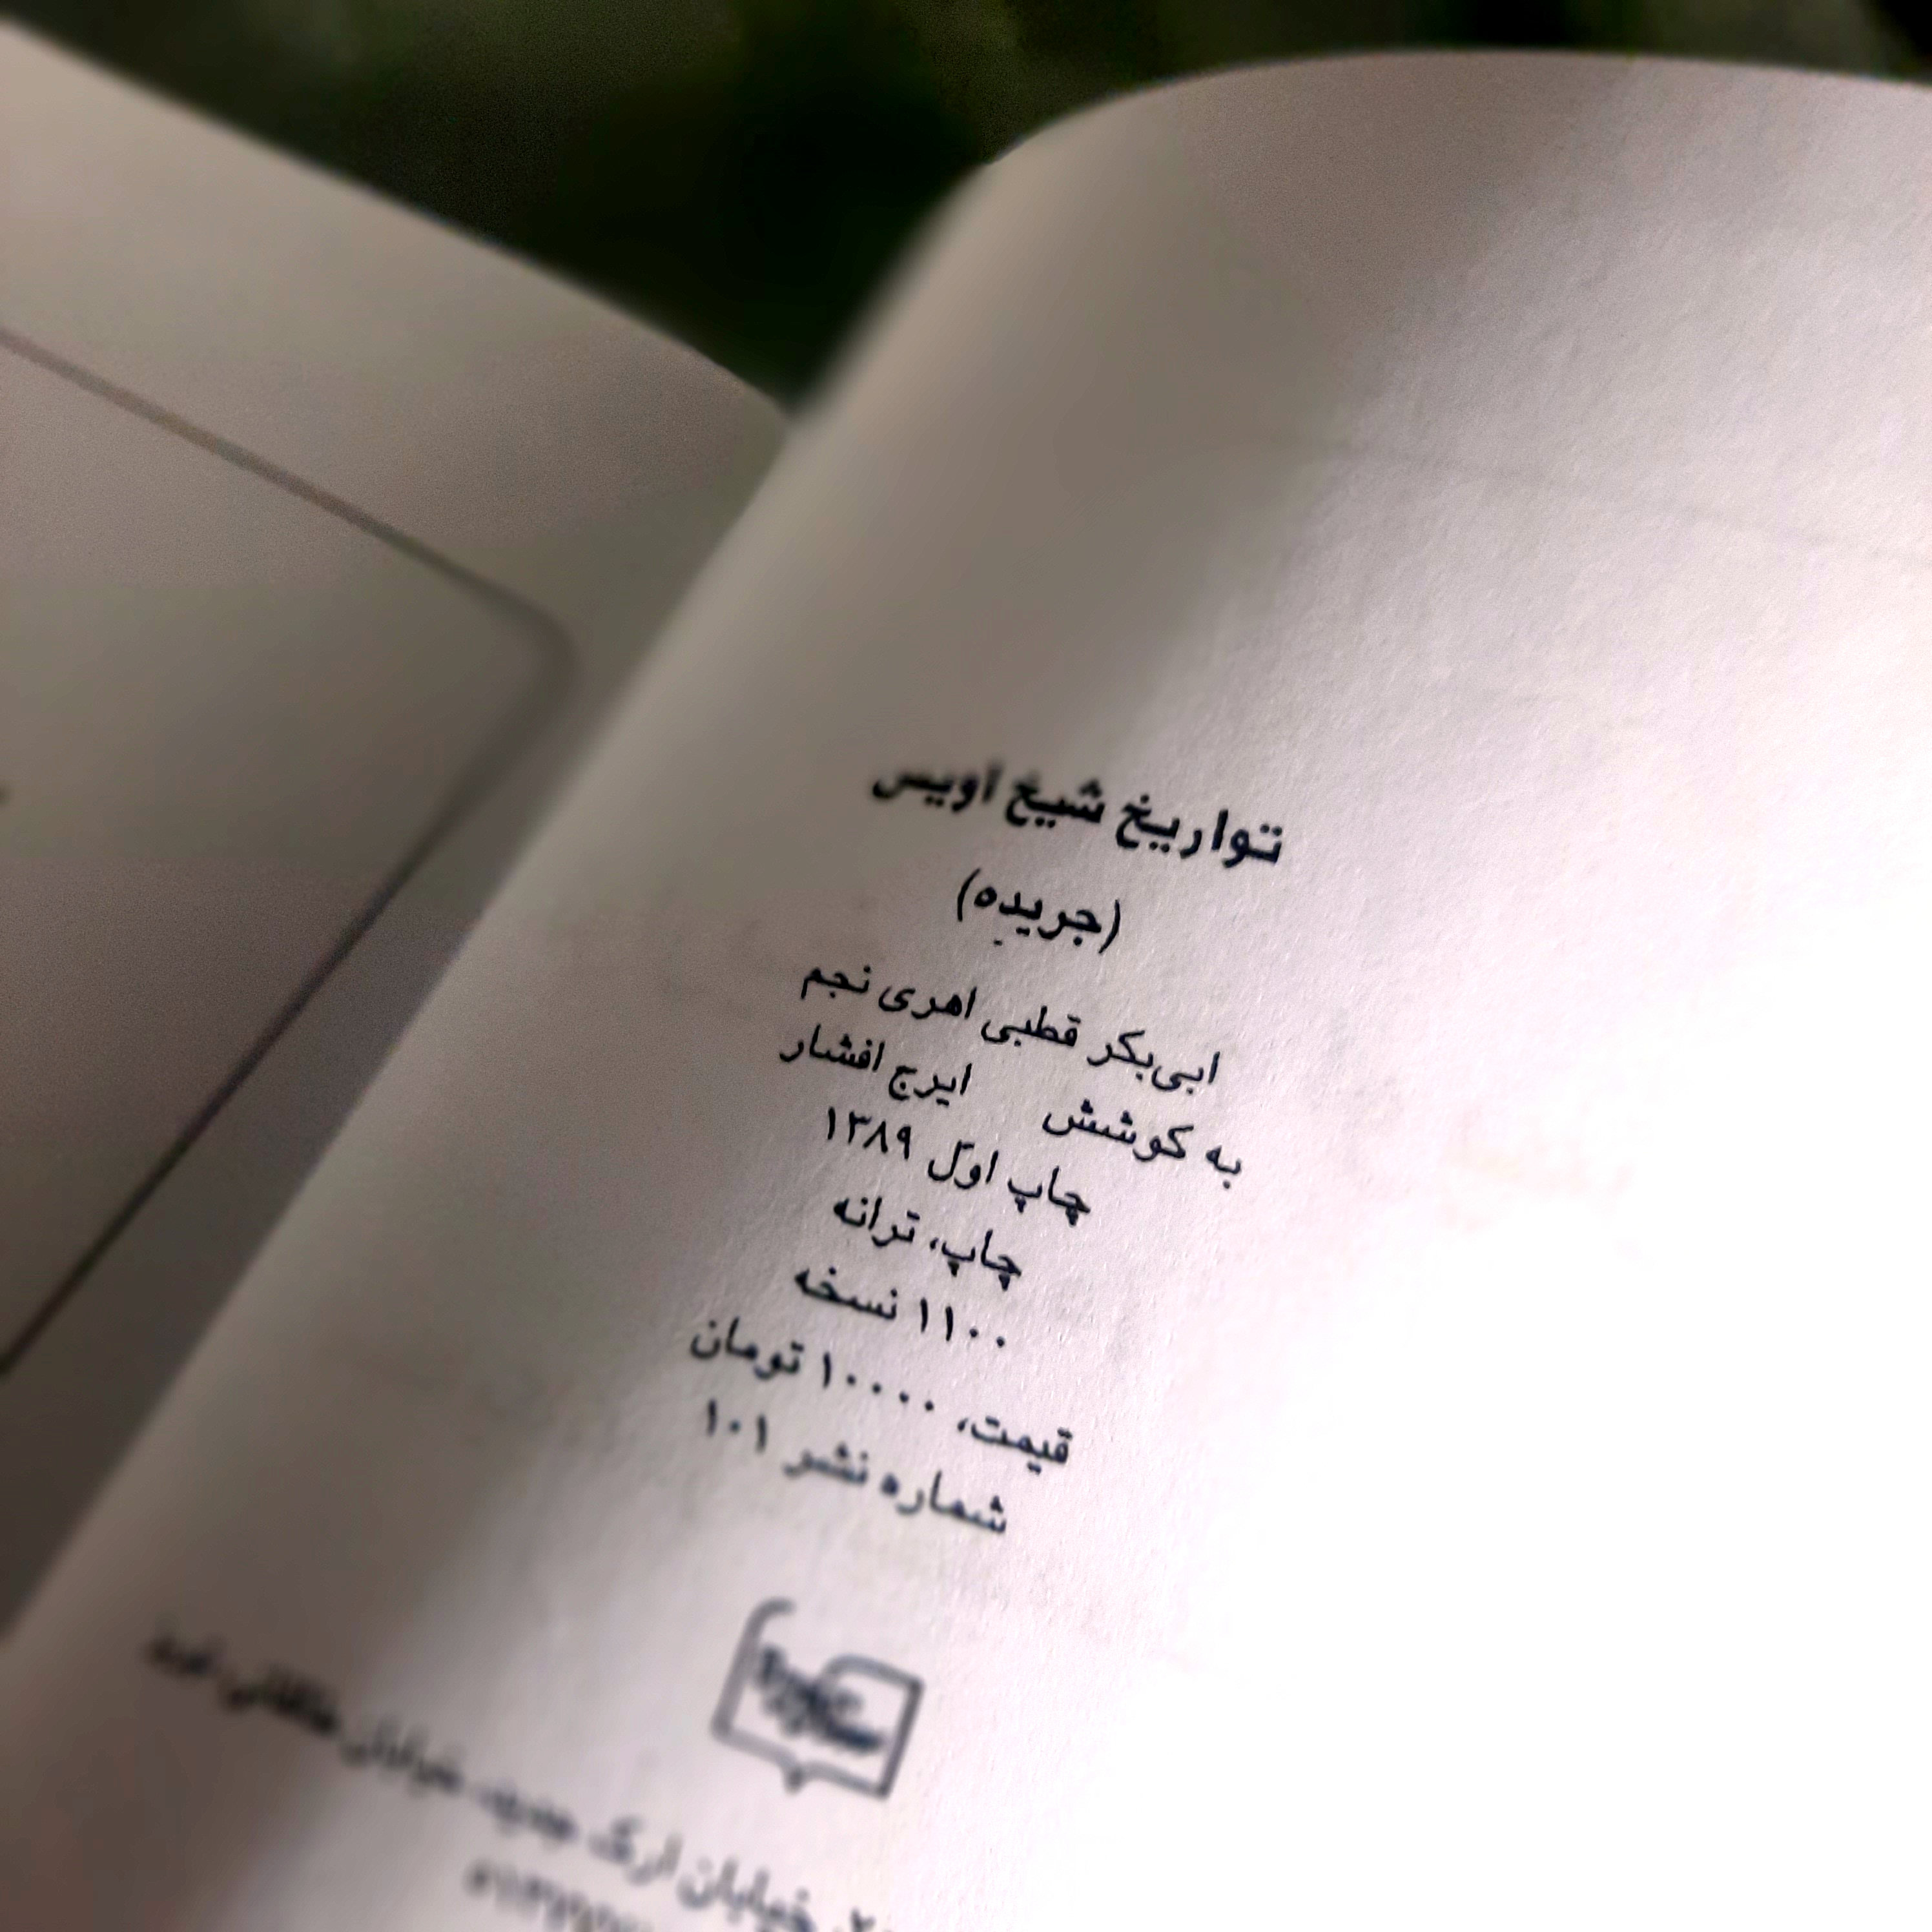 تواریخ شیخ اویس
(جریده)
ابی‌بکر قطبی اهری نجم
به کوشش ایرج افشار
چاپ اوّل ۱۳۸۹
چاپ، ترانه
۱۱۰۰ نسخه
قیمت، ۱۰۰۰۰ تومان
شماره نشر ۱۰۱
خیابان ارک جدید، خیابان طالقانی، تبریز